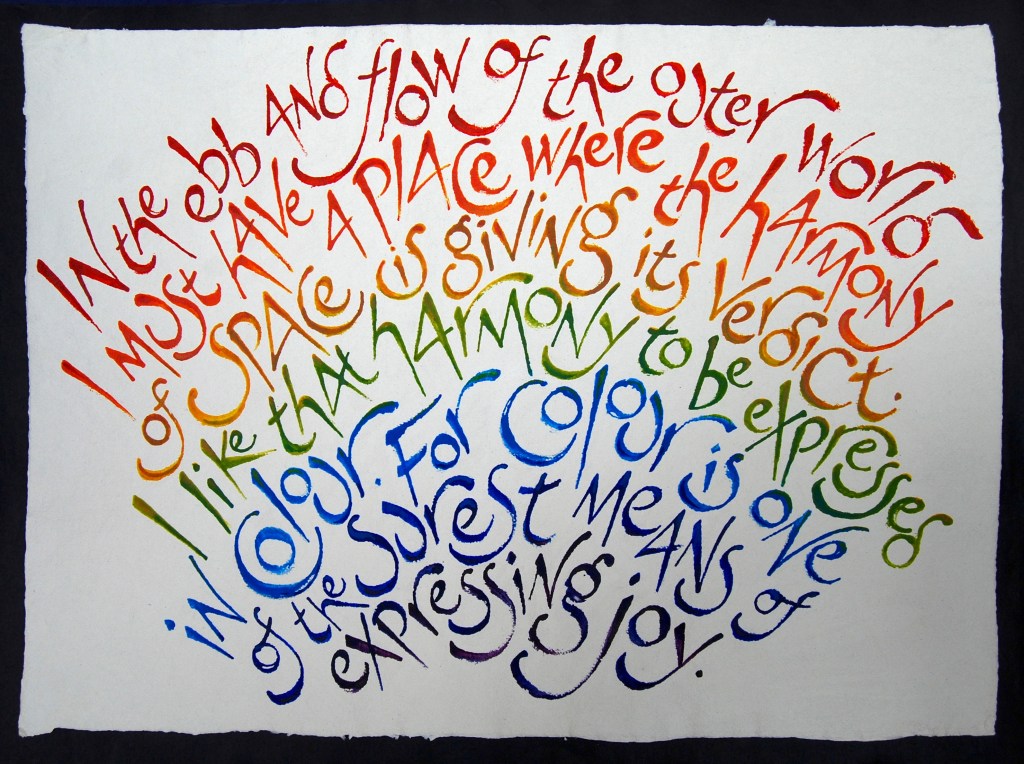 In the ebb and flow of the outer world
I must have a place where the harmony
of space is giving its verdict.
I like that harmony to be expressed
in colour. For colour is one
of the surest means of
expressing joy.